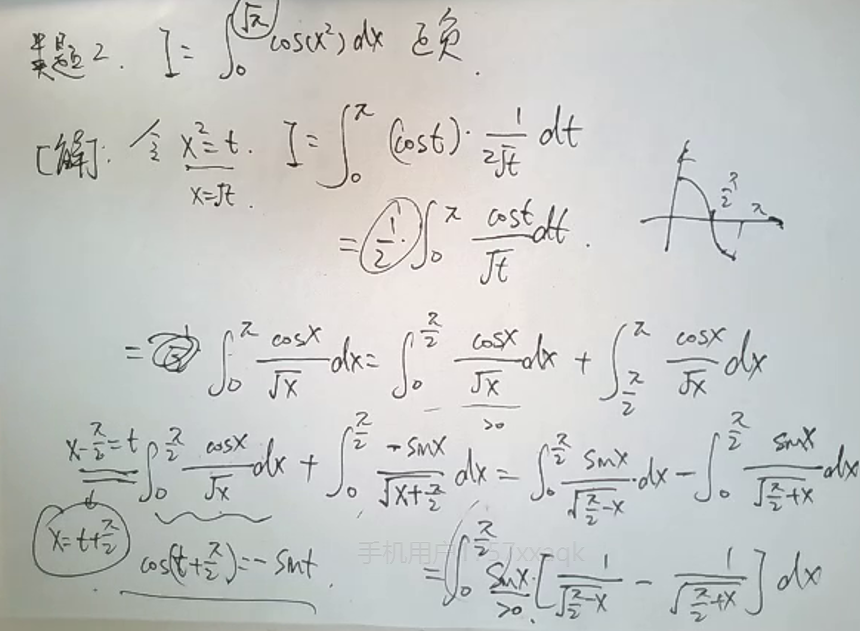 类题2. I = ∫₀^√π cos(x²) dx 正负.
[解]: 令 x² = t. I = ∫₀^π (cos t)· 1/(2√t) dt
x = √t.
= 1/2 · ∫₀^π cos t/√t dt.
π/2 π
= ∫₀^π cos x/√x dx = ∫₀^(π/2) cos x/√x dx + ∫_(π/2)^π cos x/√x dx
>0
x - π/2 = t ∫₀^(π/2) cos x/√x dx + ∫₀^(π/2) -sin x/√(x+π/2) dx = ∫₀^(π/2) sin x/√(π/2-x) · dx - ∫₀^(π/2) sin x/√(π/2+x) dx
x = t + π/2
cos(t + π/2) = - sin t.
= ∫₀^(π/2) sin x · [1/√(π/2-x) - 1/√(π/2+x)] dx
>0.